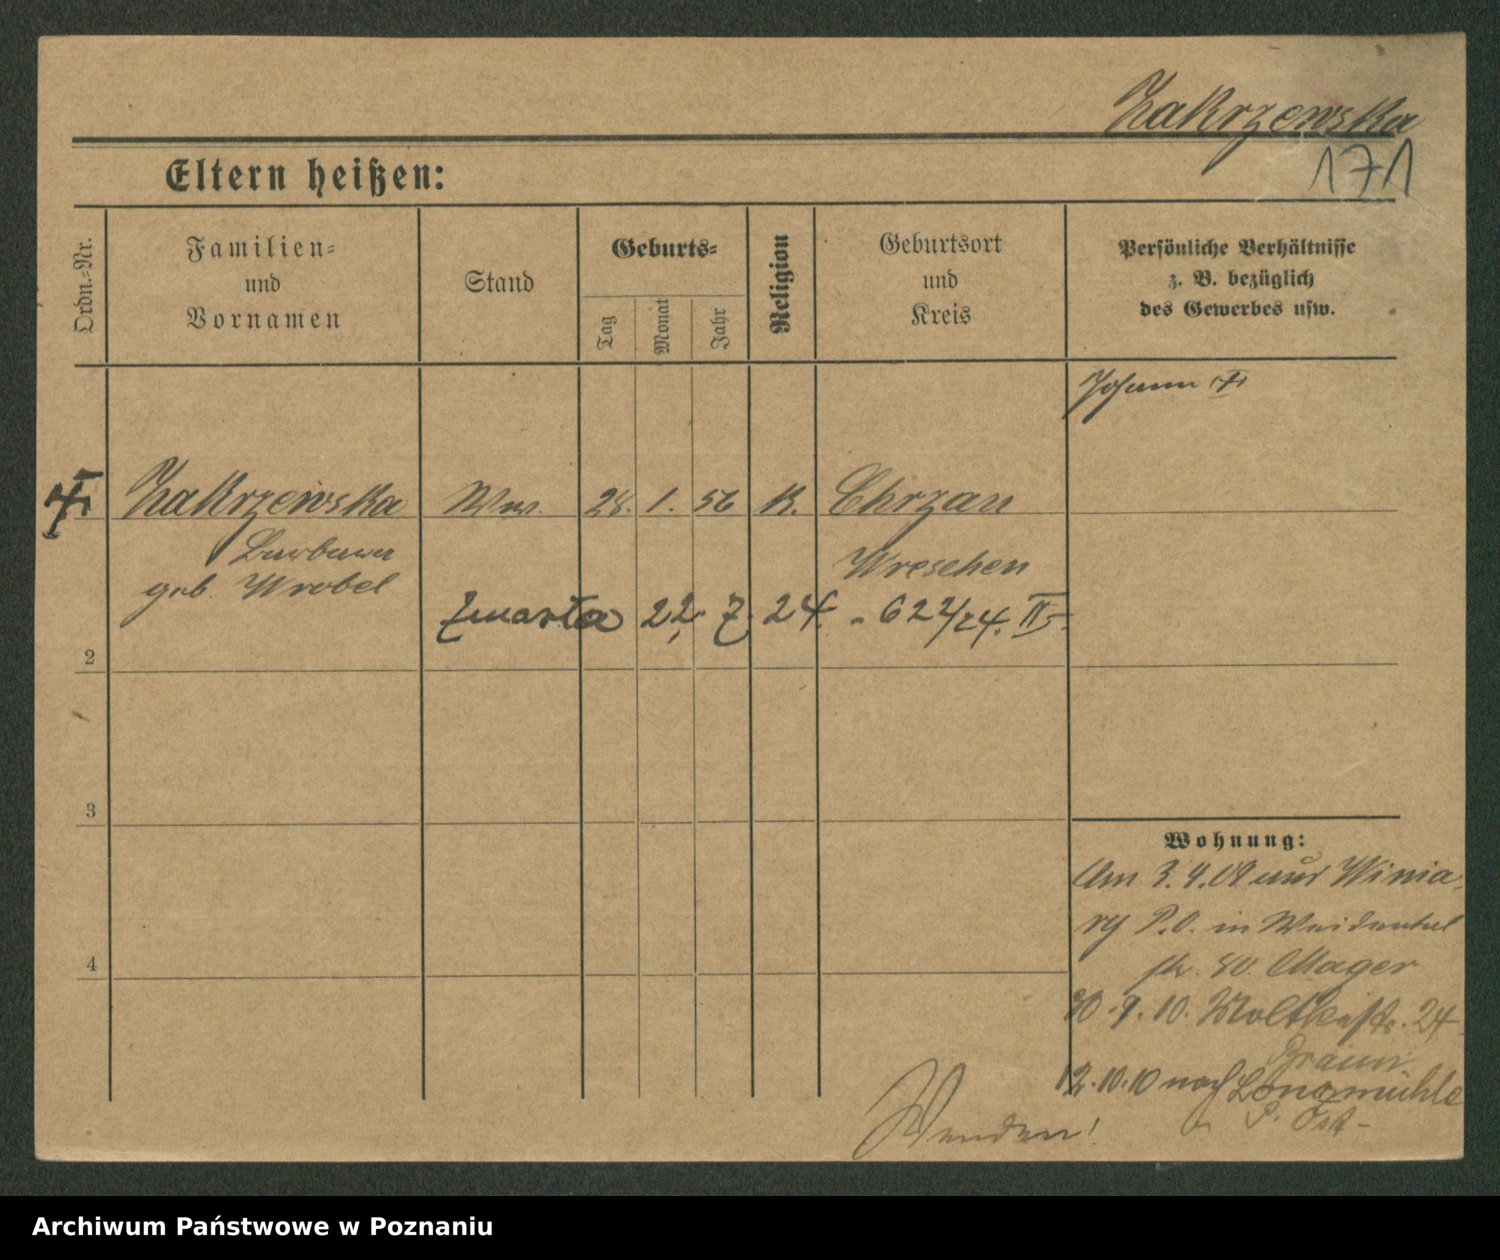 Zakrzewska
171
Eltern heißen:
Ordn.-Nr.
Familien-
und
Vornamen
Stand
Geburts-
Tag
Monat
Jahr
Religion
Geburtsort
und
Kreis
Persönliche Verhältnisse
z. B. bezüglich
des Gewerbes usw.
Johann
Zakrzewska Ww. 28. 1. 56 K. Chrzan
Barbara Wreschen
geb. Wrobel
Zmarła 22. 7. 24. - 622/24. II
2
3
Wohnung:
Am 3.4.09 aus Winia-
ry P.O. in Weidental
str. 80. Mager
4
30.9.10. Moltkestr. 24
Braun
12.10.10 nach Longmühle
P. Ost-
Wenden!
Archiwum Państwowe w Poznaniu